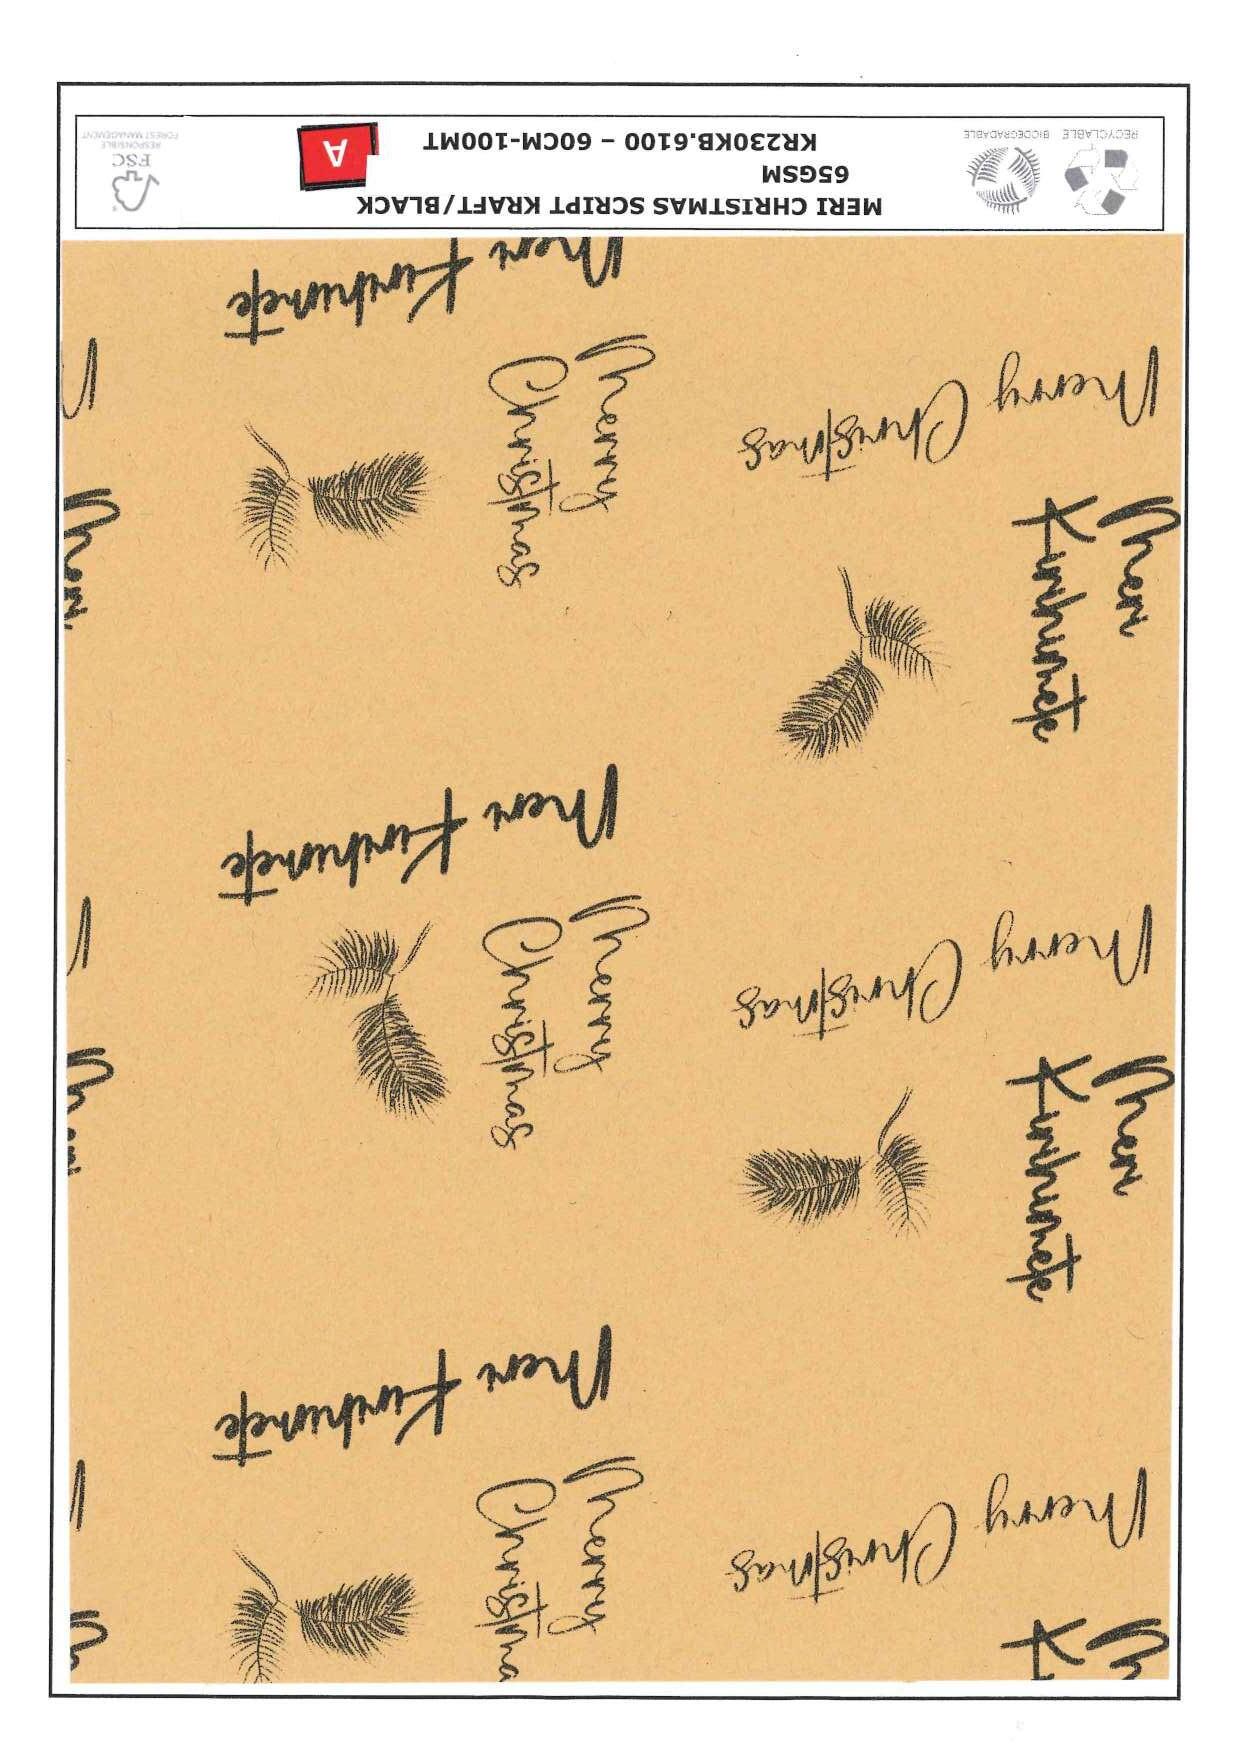 Merry Christmas
Merry
Christma
Meri Kirihimete
Meri
Kirihimete
Merry
Christmas
Meri
Merry Christmas
Meri Kirihimete
Meri
Kirihimete
Meri
Merry
Christmas
Merry Christmas
Meri Kirihimete
MERI CHRISTMAS SCRIPT KRAFT/BLACK
65GSM
KR230KB.6100 – 60CM-100MT
A
RECYCLABLE BIODEGRADABLE
FSC
RESPONSIBLE
FOREST MANAGEMENT